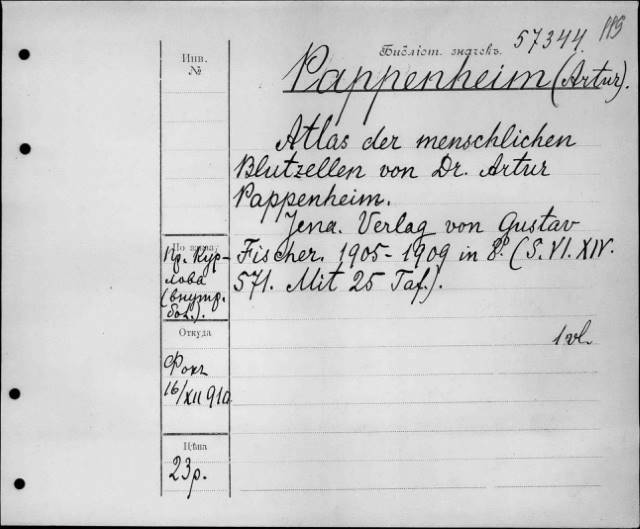 115
57344.
Библіот. значекъ.
Инв.
№
Pappenheim (Artur).
Atlas der menschlichen
Blutzellen von Dr. Artur
Pappenheim.
Jena. Verlag von Gustav
Fischer. 1905-1909 in 8º. (S. VI. XIV.
571. Mit 25 Taf.).
1 vl.
По
Пр. Кур-
лова
(внутр.
бол.).
Откуда
Фокъ
16/XII 910
Цѣна
23р.